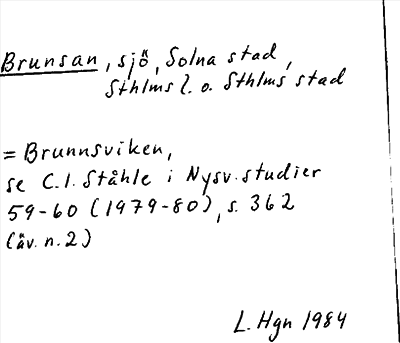 Brunsan, sjö, Solna stad,
Sthlms l. o. Sthlms stad
= Brunnsviken,
se C.I. Ståhle i Nysv. studier
59-60 (1979-80), s. 362
(äv. n. 2)
L. Hgn 1984